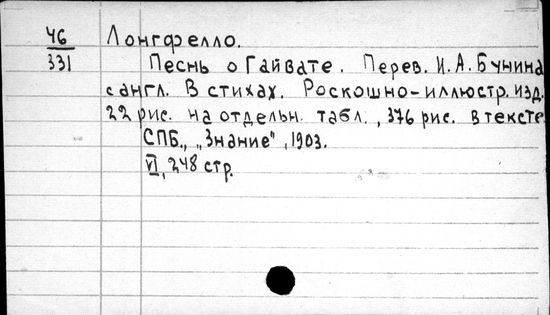 46
331
Лонгфелло.
Песнь о Гайвате. Перев. И. А. Бунина
с англ. В стихах. Роскошно-иллюстр. изд.
22 рис. на отдельн. табл., 376 рис. в тексте
СПБ., „Знание", 1903.
VI, 248 стр.